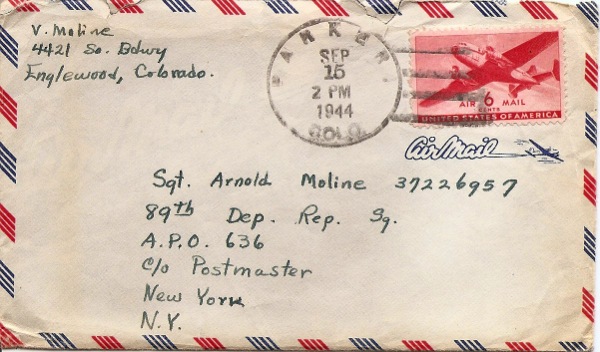 V. Moline
4421 So. Bdwy
Englewood, Colorado.
PARKER
SEP
15
2 PM
1944
COLO.
AIR 6 MAIL
CENTS
UNITED STATES OF AMERICA
Air Mail
Sgt. Arnold Moline 37226957
89th Dep. Rep. Sq.
A.P.O. 636
c/o Postmaster
New York
N.Y.